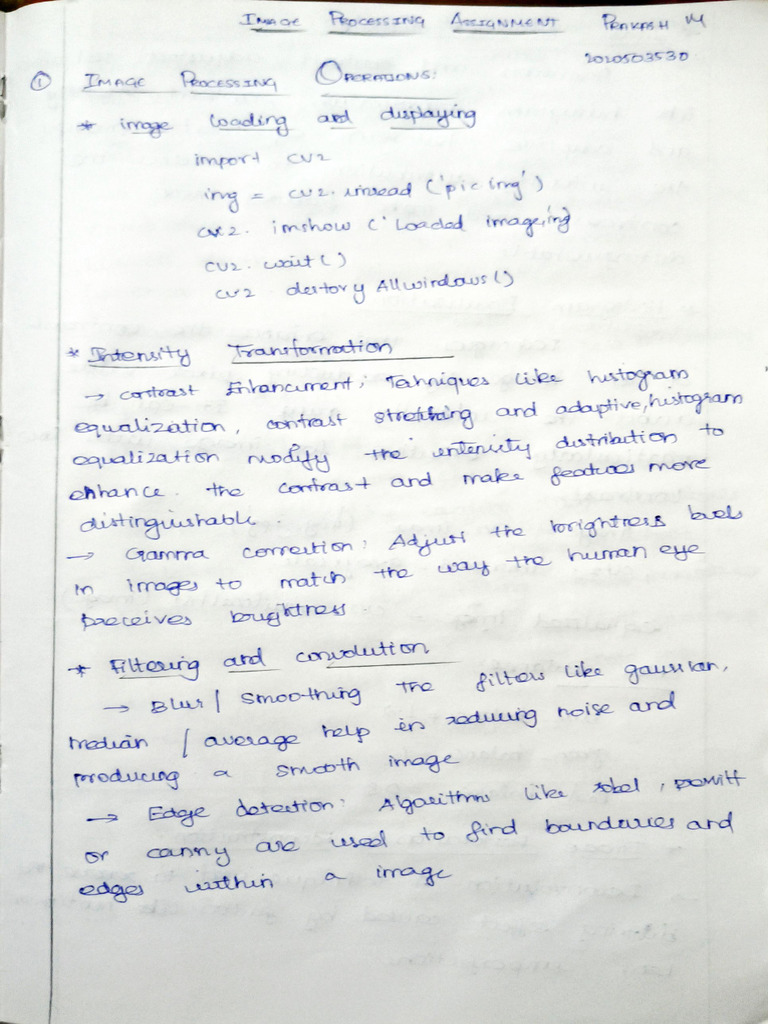 IMAGE PROCESSING ASSIGNMENT PRAKASH M
2020503530
① IMAGE PROCESSING OPERATIONS:
* image loading and displaying
import cv2
img = cv2.imread ('pic img')
cv2. imshow ('Loaded image, img)
cv2. wait()
cv2 destory Allwindows()
* Intensity Transformation
→ contrast Enhancement; Tehniques like histogram
equalization, contrast stretching and adaptive, histogram
equalization modify the intensity distribution to
enhance. the contrast and make features more
distinguishable.
→ Gamma correction: Adjusts the brightness levels
in images to match the way the human eye
preceives brightness
* Filtering and convolution
→ Blur/ smoothing the filters like gaussian,
median / average help in reducing noise and
producing a smooth image
→ Edge detection: Algorithms like sobel, prewitt
or canny are used to find boundaries and
edges within a image